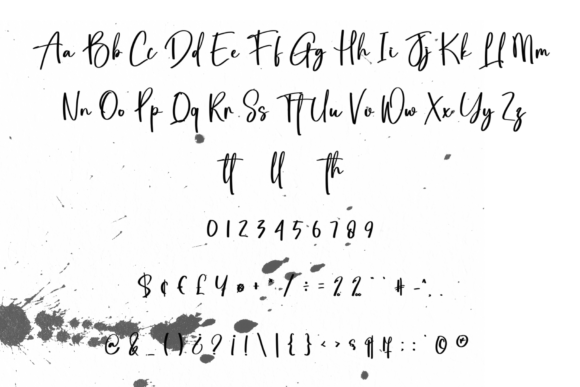 Aa Bb Cc Dd Ee Ff Gg Hh Ii Jj Kk Ll Mm
Nn Oo Pp Qq Rr Ss Tt Uu Vv Ww Xx Yy Zz
tt ll Th
0 1 2 3 4 5 6 7 8 9
$ ¢ € £ ¥ + * - / ÷ = # - ^ . .
@ & _ ( ) ¿ ? ¡ ! \ | { } < > § ¶ : : © ®